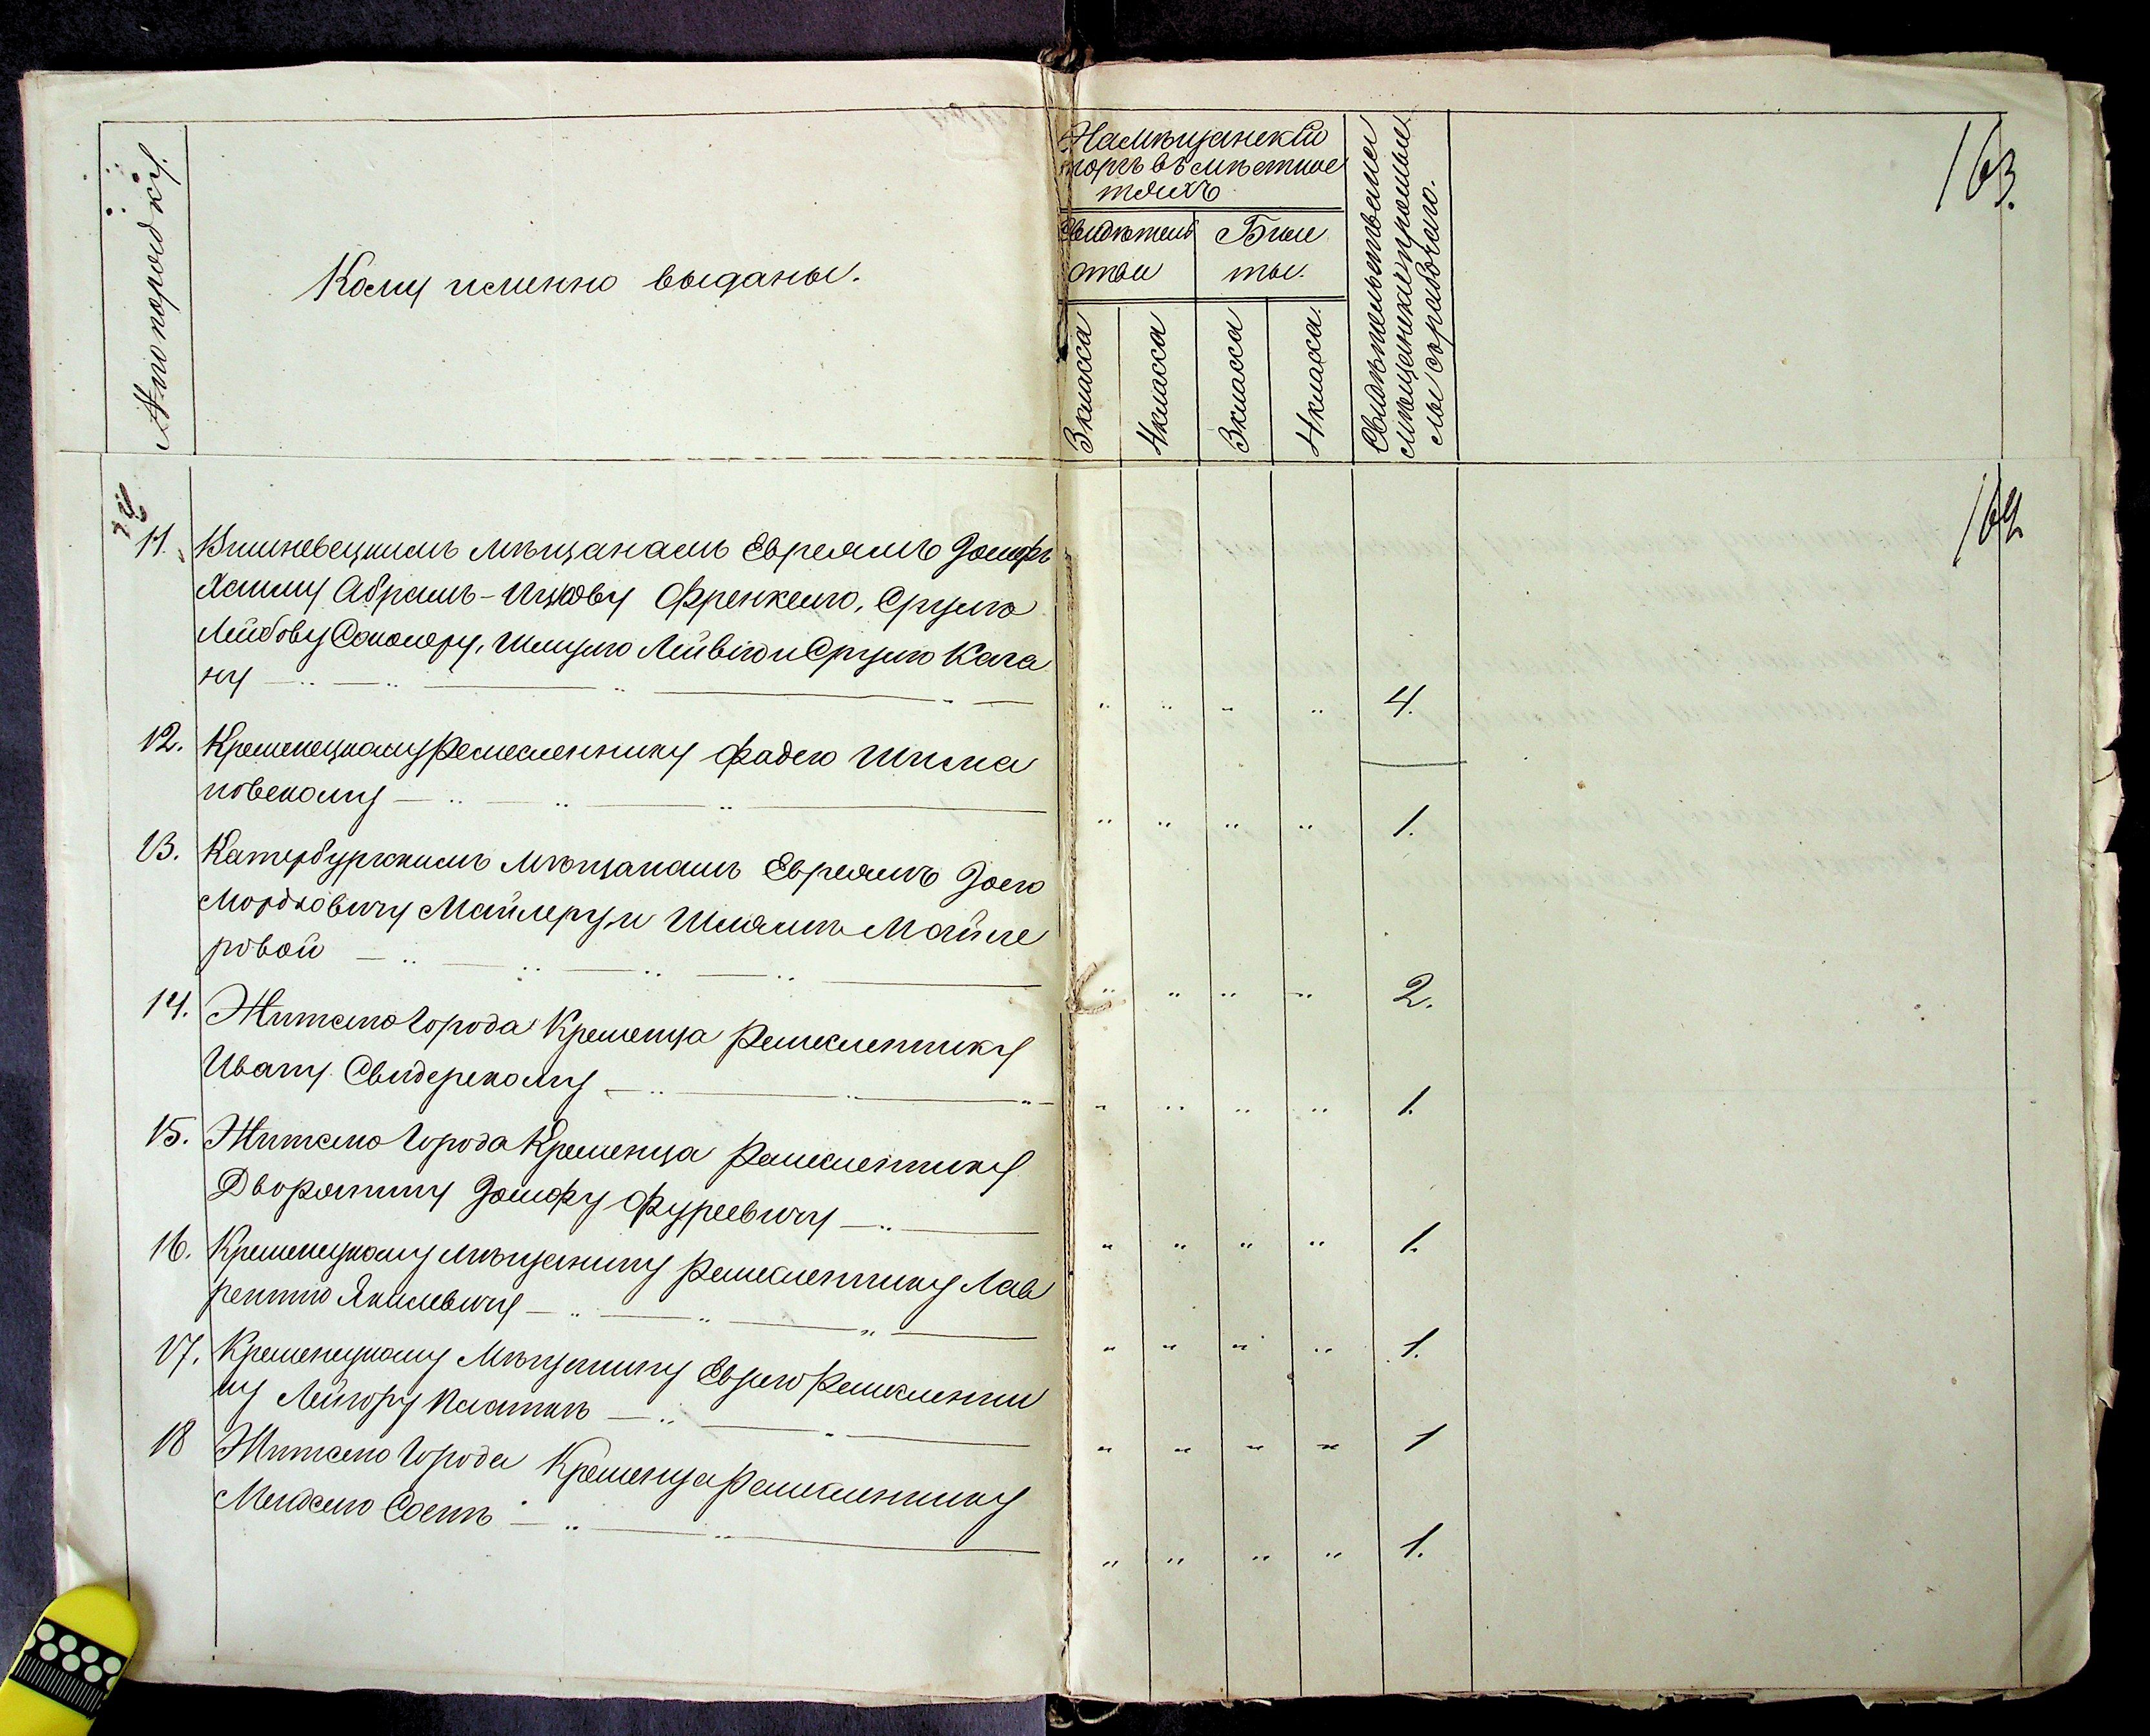 № по порядку.
Кому именно выданы.
На мѣщанскій
торгъ въ мѣстнос
тяхъ
Свидѣтель
ства
Биле
ты.
3 класса
4 класса
3 класса
4 класса
Свидѣтельства
мѣщанскіе промыс
лы
163.
164
11. Вишневецкимъ мѣщанамъ Евреямъ Іосифъ
Абрамъ-Ицкову Френкелю, Срулю
Лейбову Шмулю Лейвію и Срулю Кага
ну 4.
12. Кременецкому Ремесленнику Фадею Шима
новскому 1.
13. Катербургскимъ Мѣщанамъ Евреямъ Іосю
Мордковичу Майлеру и Майле
ровой 2.
14. Жителю Города Кременца Ремесленнику
Ивану Свидерскому 1.
15. Жителю Города Кременца Ремесленнику
Дворянину Іосифу Фурсевичу 1.
16. Кременецкому мѣщанину Ремесленнику Лав
рентію Якимевичу 1.
17. Кременецкому Мѣщанину Еврею Ремесленни
ку Лейзору 1
18 Жителю Города Кременца Ремесленнику
Менделю 1.